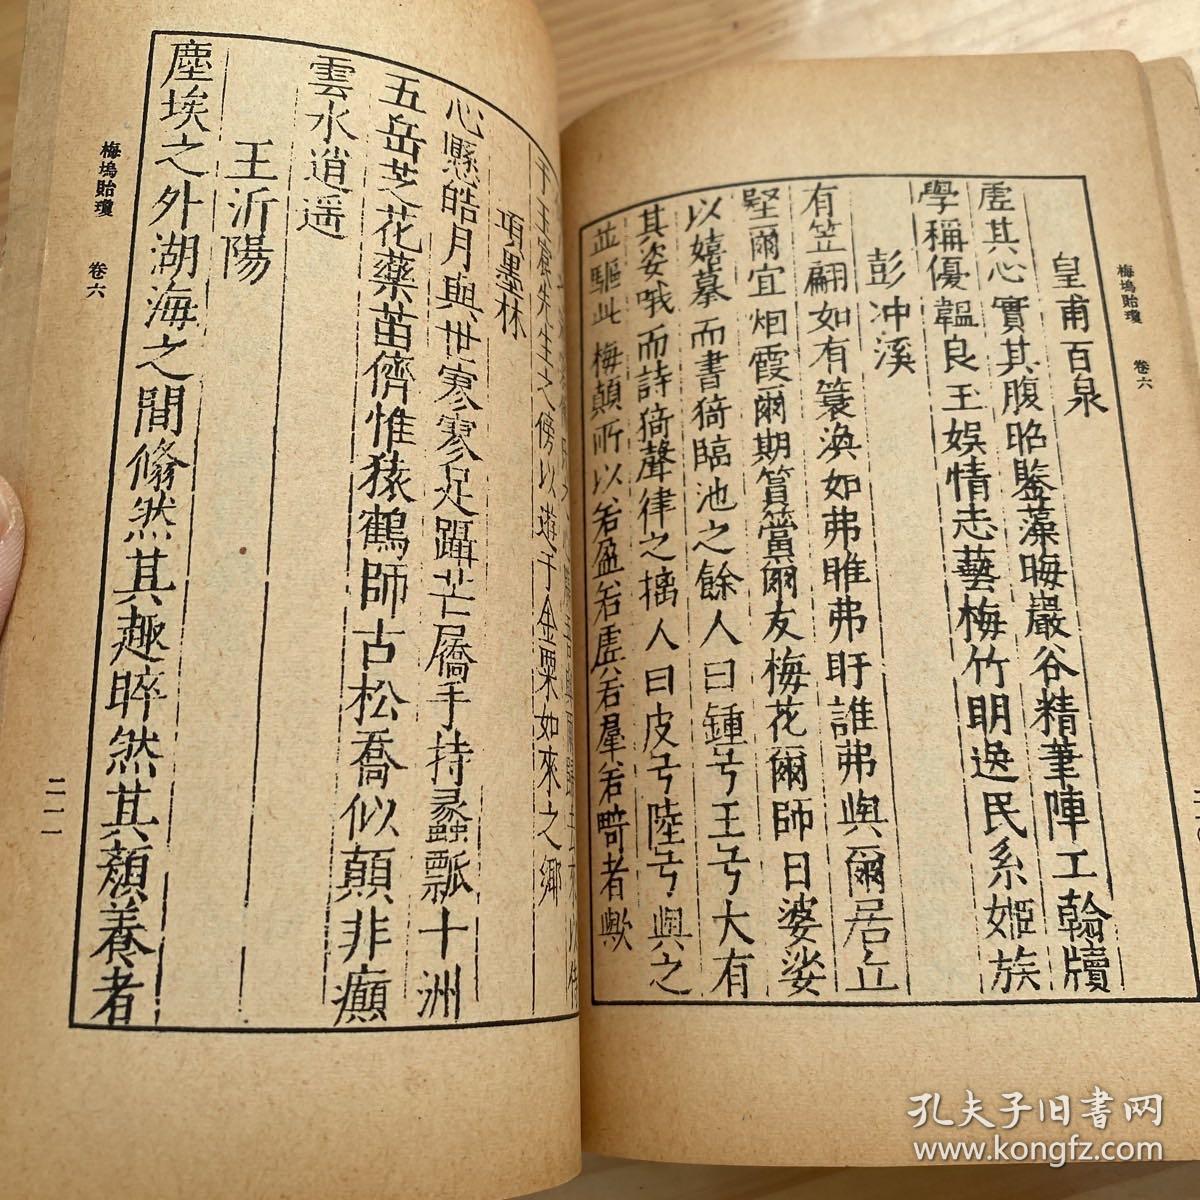 梅塢貽瓊 卷六
皇甫百泉
虛其心實其腹昭鑒藻晦巖谷精筆陣工翰牘
學稱優韞良玉娛情志藝梅竹明逸民系姬族
彭沖溪
有笠翩如有簑渙如弗睢弗盱誰弗與爾居丘
壑爾宜烟霞爾期篔簹爾友梅花爾師日婆娑
以嬉摹而書猗臨池之餘人曰鍾兮王兮大有
其姿哦而詩猗聲律之摛人曰皮兮陸兮與之
並驅此梅顛所以若盈若虛若羣若畸者歟
先生之傍以遊于金粟如來之鄉
項墨林
心懸皓月與世寥寥足躡芒屩手持蠡瓢十洲
五岳芝花藥苗儕惟猿鶴師古松喬似顛非癲
雲水逍遥
王沂陽
塵埃之外湖海之間翛然其趣睟然其顏養者
梅塢貽瓊 卷六
二一一
孔夫子旧书网
www.kongfz.com